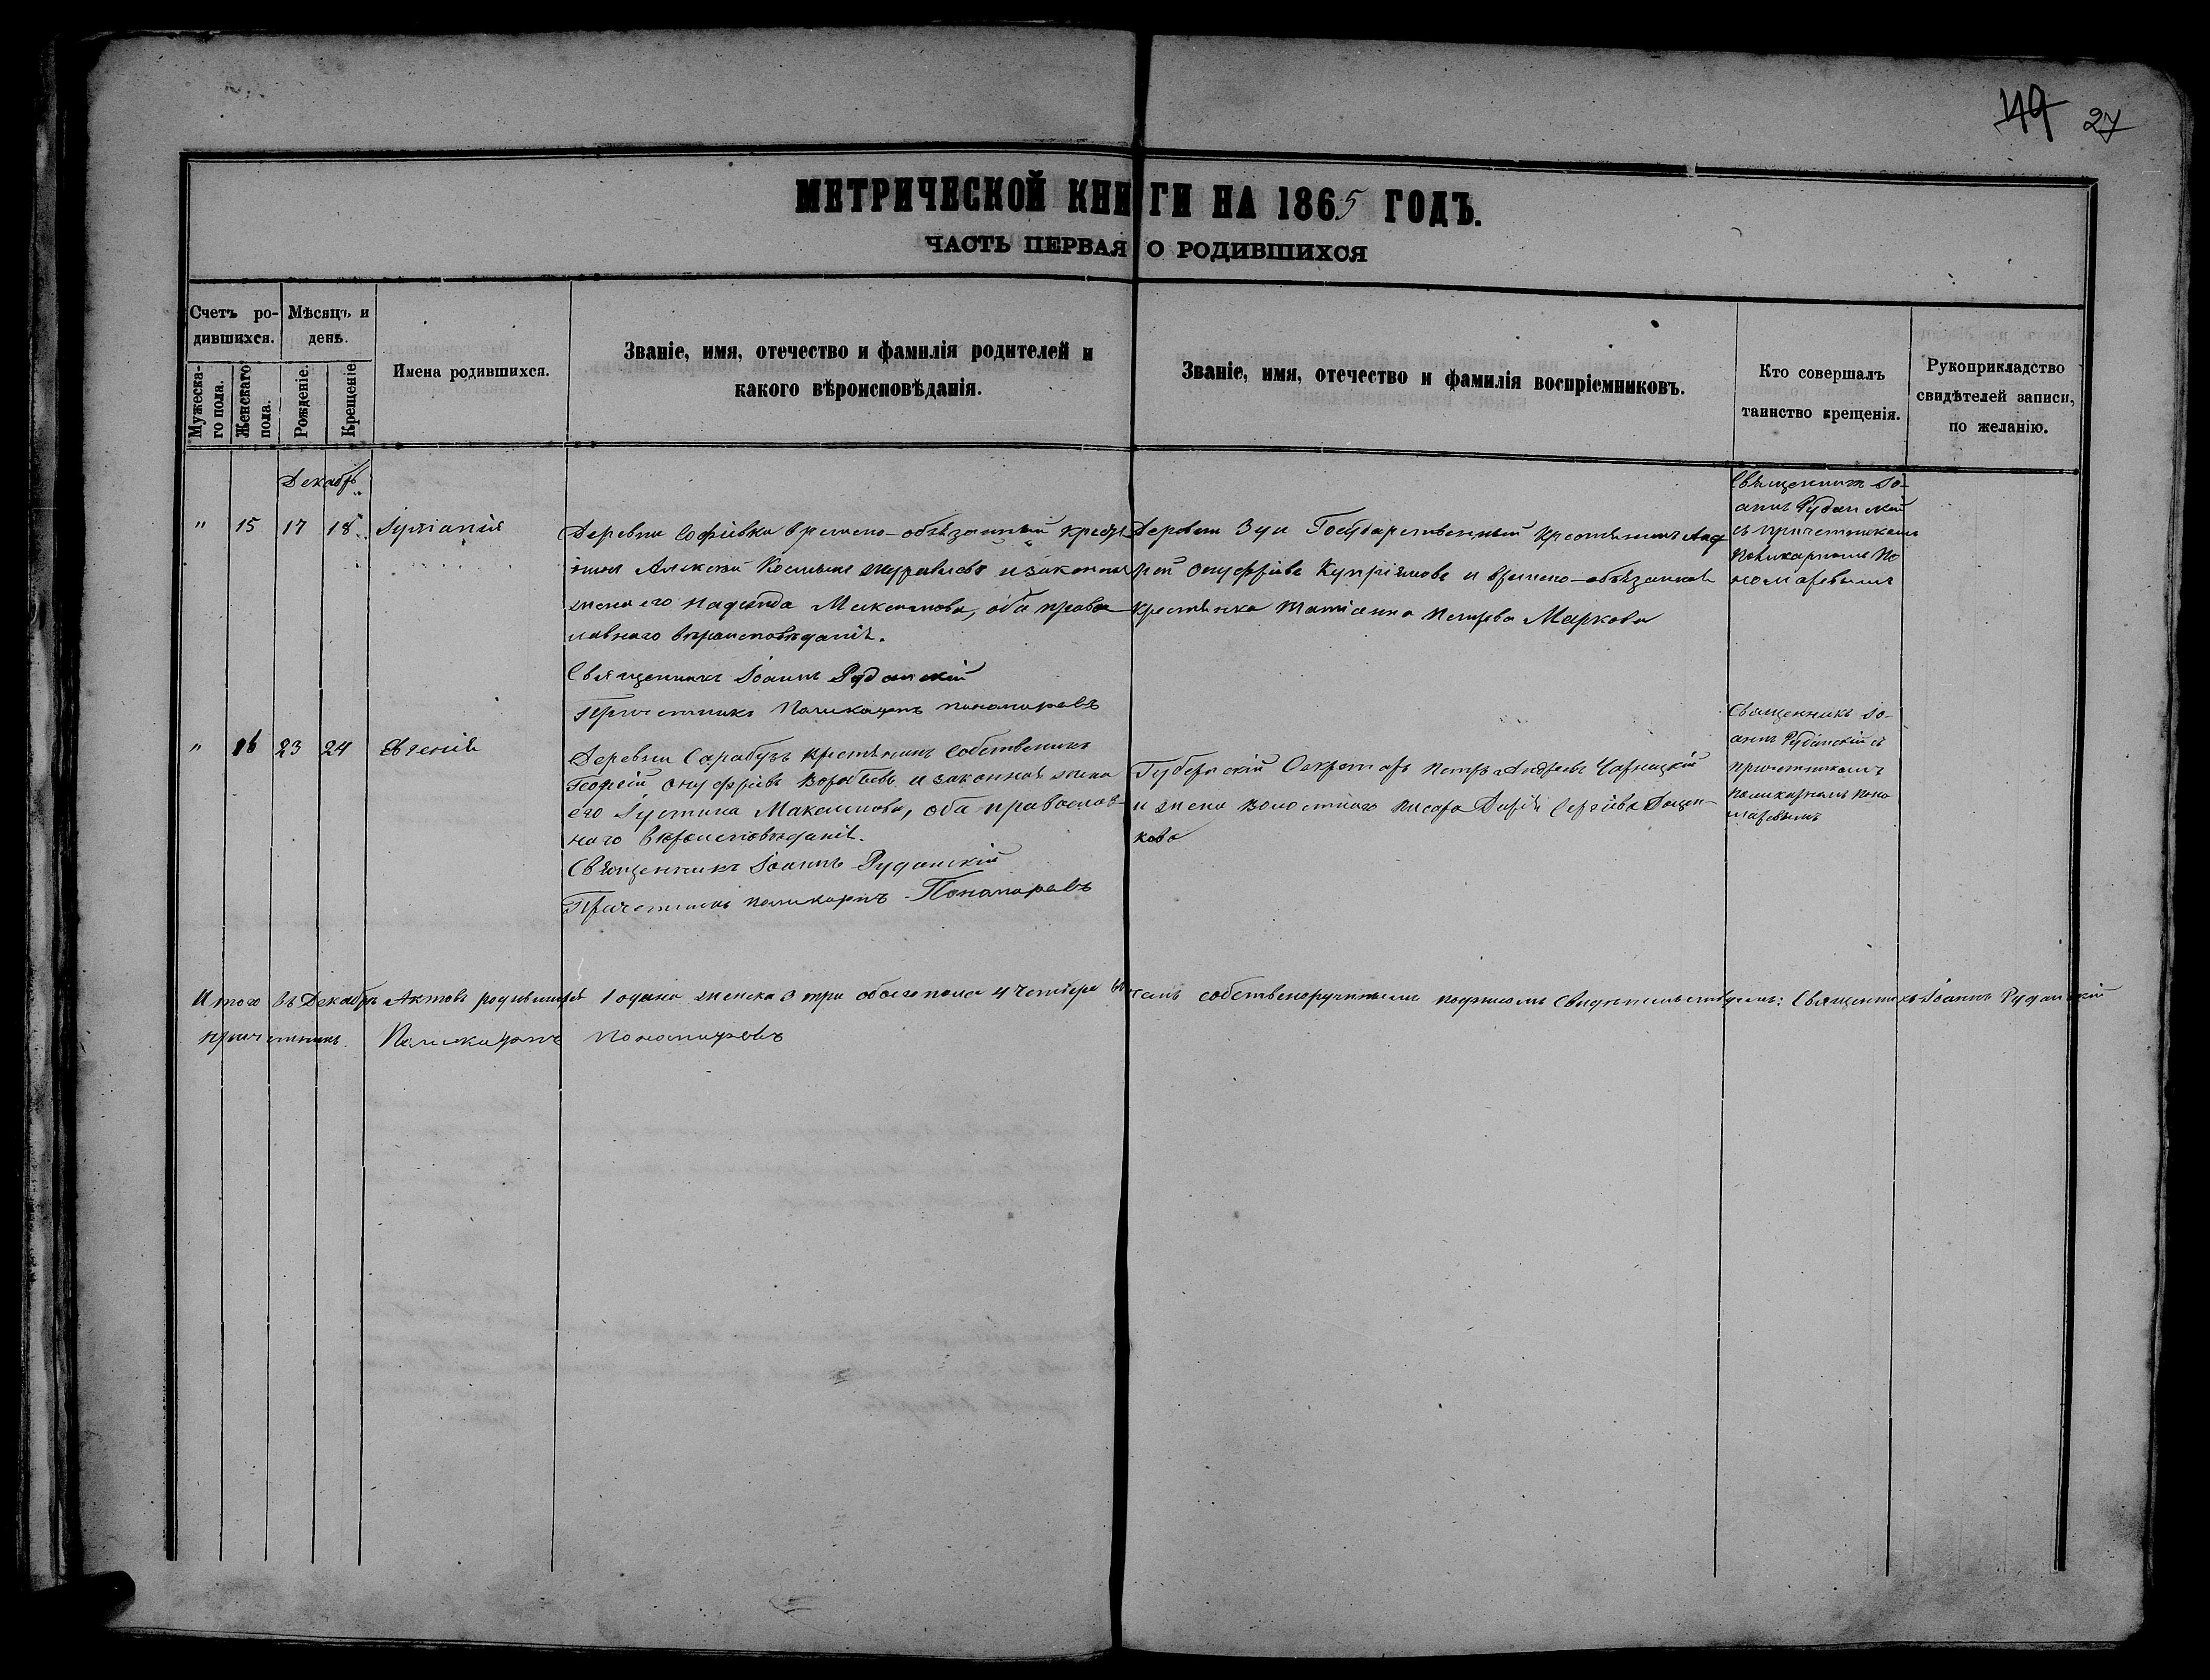 49 27
МЕТРИЧЕСКОЙ КНИГИ НА 1865 ГОДЪ.
ЧАСТЬ ПЕРВАЯ О РОДИВШИХСЯ
Счетъ ро-
дившихся.
Мужеска-
го пола.
Женскаго
пола.
Мѣсяцъ и
день.
Рожденіе.
Крещеніе
Имена родившихся.
Званіе, имя, отечество и фамилія родителей и
какого вѣроисповѣданія.
Званіе, имя, отечество и фамилія воспріемниковъ.
Кто совершалъ
таинство крещенія.
Рукоприкладство
свидѣтелей записи,
по желанію.
Декабрь
" 15 17 18 Іуліанія
Деревни Софіевки времено-обязанный крест
янинъ Алексѣй Косьминъ Журавлевъ и законная
жена его Надежда Максимова, оба право
славнаго вѣроисповѣданія.
Священникъ Іоаннъ Руданскій
Причетникъ Поликарпъ Пономаревъ
Деревни Зуи Государственный крестьянинъ Анд
рей Онуфріевъ Купріяновъ и времено-обязанная
крестьянка Татіанна Петрова Маркова
Священникъ Іо-
аннъ Руданскій
съ причетникомъ
Поликарпомъ По
номаревымъ
" 16 23 24 Евгенія
Деревни Сарабузъ крестьянинъ собственникъ
Георгій Онуфріевъ Воробьевъ и законная жена
его Іустина Максимова, оба православ-
наго вѣроисповѣданія.
Священникъ Іоаннъ Руданскій
Причетникъ Поликарпъ Пономаревъ
Губернскій Секретарь Петръ Андреевъ Чарнецкій
и жена волостнаго писаря Дарія Сергіева Доцен-
кова
Священникъ Іо-
аннъ Руданскій съ
причетникомъ
Поликарпомъ Поно
маревымъ
Итого въ Декабрѣ Актовъ родившихся 1 одинъ женска 3 три обоего пола 4 четыре собственоручнымъ подписомъ свидѣтельствуемъ: Священникъ Іоаннъ Руданскій
причетникъ Поликарпъ Пономаревъ